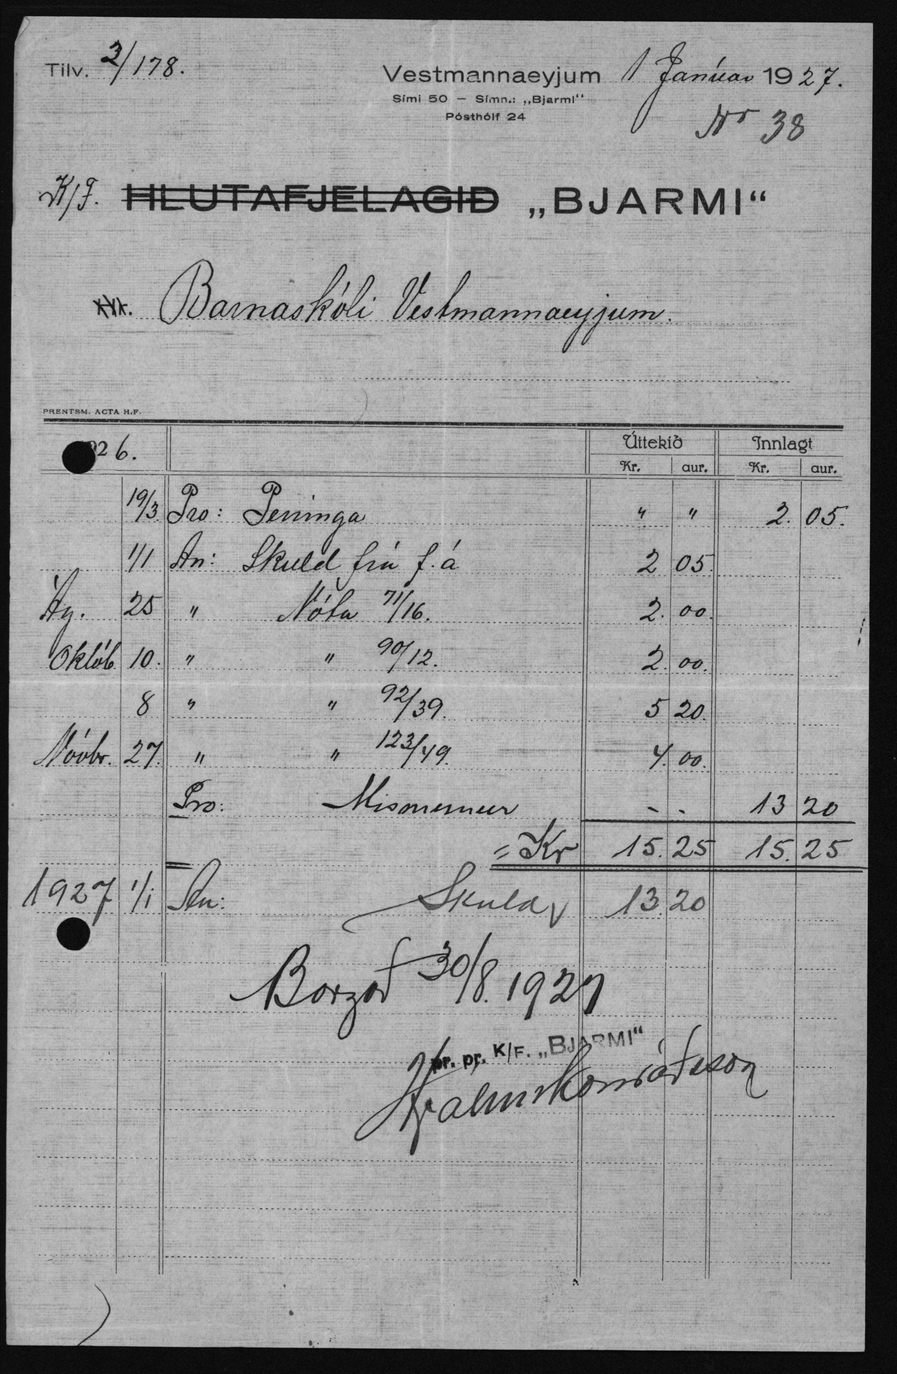 Tilv. 2/178.
Vestmannaeyjum 1 Janúar 1927.
Sími 50 — Símn.: „Bjarmi“
Pósthólf 24
Nr 38
K/F. HLUTAFJELAGIÐ „BJARMI“
Barnaskóli Vestmannaeyjum.
PRENTSM. ACTA H.F.
1926. Úttekið Innlagt
Kr. aur. Kr. aur.
19/3 Pro: Peninga " " 2. 05.
1/1 An: Skuld frá f. á 2 05.
Ág. 25 " Nóta 71/16. 2. 00.
Októb 10. " " 90/12. 2. 00.
8 " " 92/39. 5 20.
Nóvbr. 27. " " 123/49. 4. 00.
Pro: Mismunur - - 13 20
= Kr 15. 25 15. 25
1927 1/1 An: Skuld 13. 20
Borgað 30/8. 1927
pr. pr. K/F. „BJARMI“